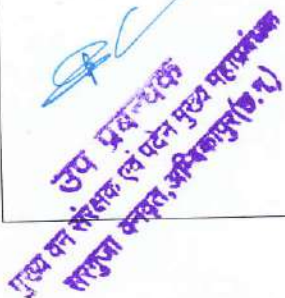 उप प्रबन्धक
मुख्य वन संरक्षक एवं पदेन मुख्य महाप्रबंधक
सरगुजा वनवृत्त, अम्बिकापुर (छ.ग.)